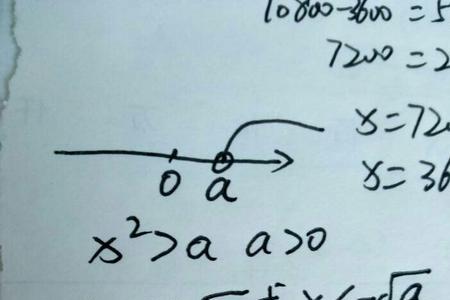 10800-3600=5
7200=2
x=72
x=36
0 a
x²>a a>0
x<-√a